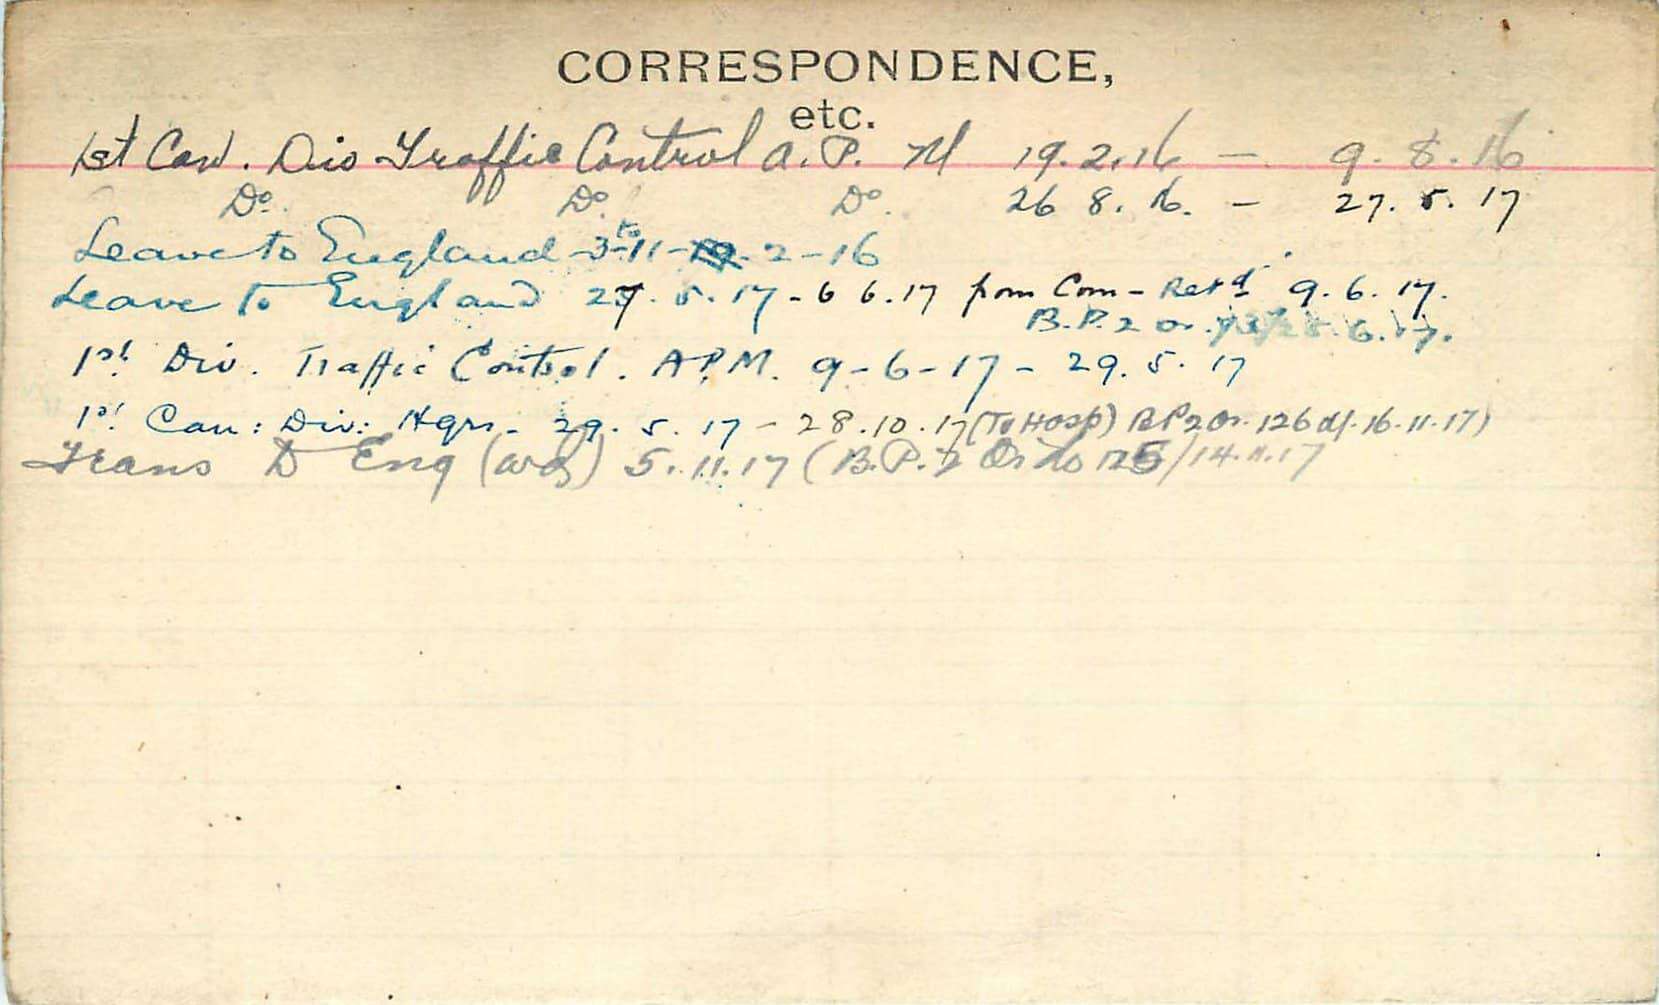 CORRESPONDENCE,
etc.
1st Can. Div Traffic Control A. P. M 19.2.16 – 9.8.16
Do. Do. Do. 26 8.16. – 27.5.17
Leave to England -3-to 11- 2-16
Leave to England 27.5.17-6 6.17 from Com- Retd 9.6.17.
B.P.2 Or. 6.17.
1st Div. Traffic Control. A.P.M. 9-6-17 - 29.5.17
1st Can: Div: Hqrs- 29.5.17 - 28.10.17 (To Hosp) B P 2 Or. 126 d/. 16.11.17)
Trans to Eng (wd) 5.11.17 (B.P.2 Or No 125/14.11.17